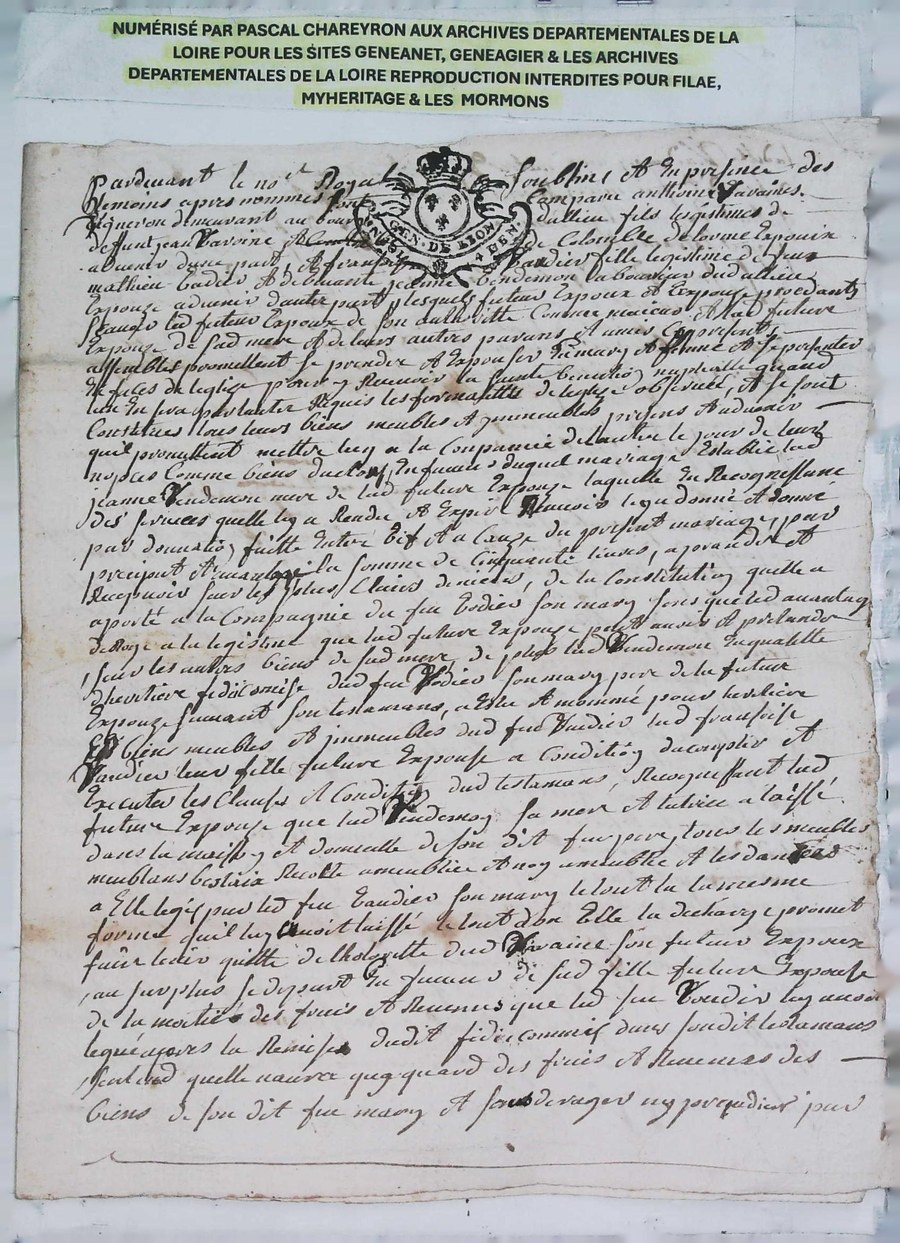 NUMÉRISÉ PAR PASCAL CHAREYRON AUX ARCHIVES DEPARTEMENTALES DE LA
LOIRE POUR LES SITES GENEANET, GENEAGIER & LES ARCHIVES
DEPARTEMENTALES DE LA LOIRE REPRODUCTION INTERDITES POUR FILAE,
MYHERITAGE & LES MORMONS
Pardevant le no.re Royal soubsigne Et En presence des
temoins apres nommes comparu anthoine Varaine
vigneron demeurant au bourg fils legitimes de
deffunt jean Varoine Et de Colombe delorme Expoux
GEN. DE LYON
advenir dune part, Et françoise Vaudier fille legitime de feux
mathieu Et demeurante jeanne Vendemon
Expouze advenir dautre part, lesquels futeur Expoux Et Expouze procedants
led futeur Expoux de son authoritte Comme Et lad future
Expouze de sad mere Et de leurs autres parans Et amis Cy presents
assemblés promettent se prendre Et Expouser En mary Et femme Et se presenter
En face de leglise pour y Recevoir la sainte benediction nuptialle quand
lun En sera par lautre Requis les formalittés de leglise observée, Et se sont
Constitués tous leurs biens meubles Et immeubles presens Et advenir
quil promettent mettre En la Compagnie de lautre le jour de leurs
nopces Comme biens En faveurs duquel mariage Establie lad
jeanne Vendemon mere de lad future Expouze laquelle En Recognessance
des services quelle luy a Rendu Et Espere Recevoir luy a donné Et donne
par donnation faitte Entre vif Et a Cause du present mariage, par
preciput Et avantage la somme de Cinquante livres, a prandre Et
Recepvoir sur les plus Clairs deniers, de la Constitution quelle a
aporté a la Compagnie du feu Vodier son mary sans que led avantage
deroge a la legitime que lad future Expouze peut avoir Et pretandre
sur les autres biens de sad mere, de plus lad Vendemon En qualitté
dheritiere fideicomise dud feu Vodier son mary pere de la future
Expouze suivant son testamans, a Eslu Et nommé pour heritiere
Es biens meubles Et immeubles dud feu Vaudier lad françoise
Vaudier leur fille future Expouse a Condition dacomplir Et
Executer les Clauses Et Conditions dud testamans, Recognessant lad
future Expouze que lad Vendemon sa mere Et tutrice a laissé
dans la maison Et domicille de son dit feu pere, tous les meubles
meublans bestiaix Recolte ameublie Et non ameublie Et les danrées
a Elle legué par led feu Vaudier son mary le tout En la mesme
forme quil luy avoit laissé le tout dont Elle la decharge promet
faire tenir quitte de lhoirette dud Varaine son futeur Expoux
au surplus se depart En faveur de sad fille future Expouse
de la moitié des fruis Et Revenus que led feu Vaudier luy avoit
legué apres la Remise dudit fideicommis dans sondit testamans
quelle naura quun quard des fruis Et Revenus des
biens de son dit feu mary Et sans deroger ny prejudicier par